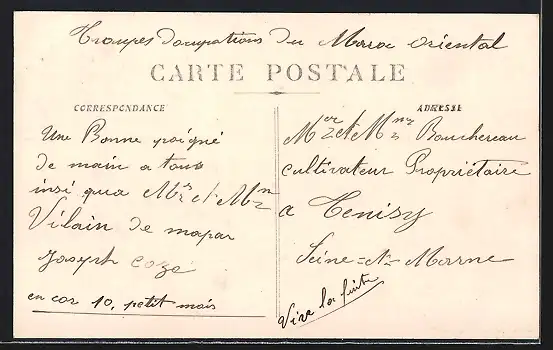 Troupes docupations du Maroc oriental
CARTE POSTALE
CORRESPONDANCE
Une Bonne poigné
de main a tous
insi qua Mr et Mm
Vilain de mapar
Joseph Cozé
en cor 10, petit mois
ADRESSE
Mer et Mme Bouchereau
cultivateur Propriétaire
a Tenisy
Seine-et-Marne
Vive la